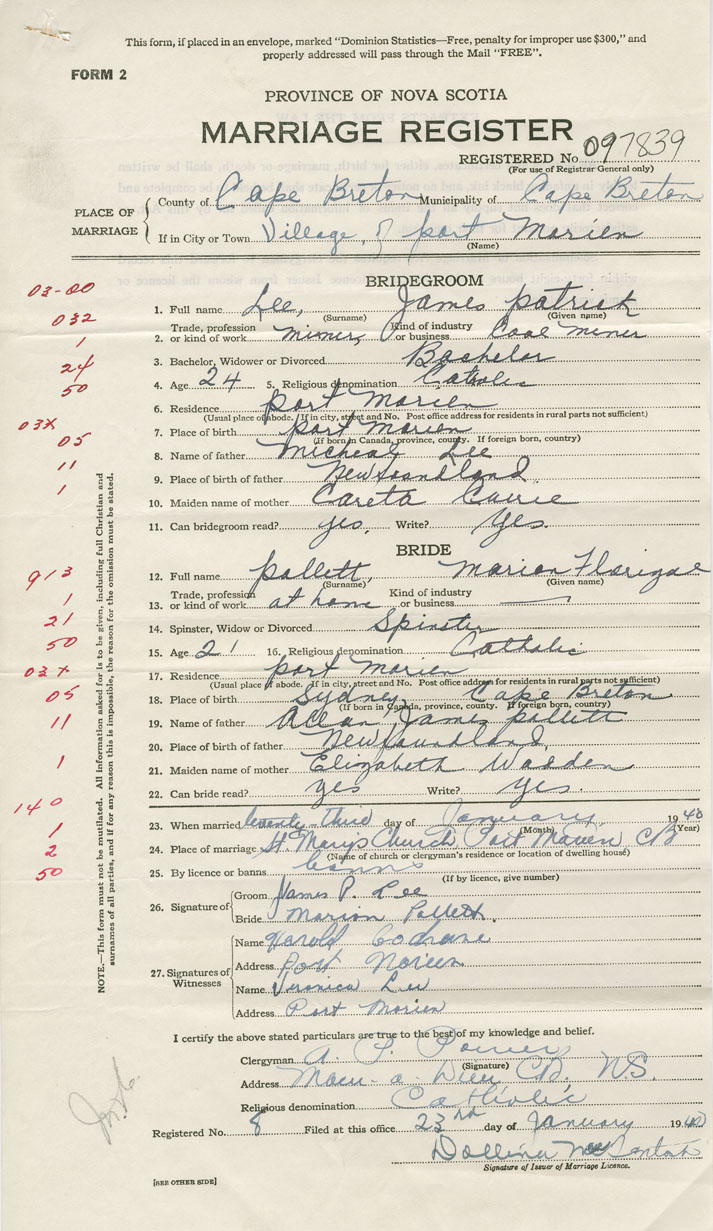 This form, if placed in an envelope, marked “Dominion Statistics—Free, penalty for improper use $300,” and
properly addressed will pass through the Mail “FREE”.
FORM 2
PROVINCE OF NOVA SCOTIA
MARRIAGE REGISTER
REGISTERED No. 097839
(For use of Registrar General only)
PLACE OF MARRIAGE
County of Cape Breton Municipality of Cape Breton
If in City or Town Village of port Morien
(Name)
BRIDEGROOM
03-00
1. Full name Lee, James patrick
(Surname) (Given name)
032
2. Trade, profession or kind of work miner, Kind of industry or business Coal miner
1
3. Bachelor, Widower or Divorced Bachelor
24
4. Age 24 5. Religious denomination Catholic
50
6. Residence port Morien
(Usual place of abode. If in city, street and No. Post office address for residents in rural parts not sufficient)
03X
7. Place of birth port Morien
(If born in Canada, province, county. If foreign born, country)
05
8. Name of father Micheal Lee
11
9. Place of birth of father Newfoundland.
1
10. Maiden name of mother Careta Currie
11. Can bridegroom read? yes, Write? Yes.
BRIDE
913
12. Full name pollett, Marion
(Surname) (Given name)
1
13. Trade, profession or kind of work at home Kind of industry or business —
21
14. Spinster, Widow or Divorced Spinster
50
15. Age 21 16. Religious denomination Catholic
03X
17. Residence port Morien
(Usual place of abode. If in city, street and No. Post office address for residents in rural parts not sufficient)
05
18. Place of birth Sydney, Cape Breton
(If born in Canada, province, county. If foreign born, country)
11
19. Name of father Allan James pollett
20. Place of birth of father Newfoundland,
1
21. Maiden name of mother Elizabeth Wadden
22. Can bride read? yes Write? yes.
140
23. When married twenty-third day of January, 1940
(Month) (Year)
1
24. Place of marriage St. Mary's Church Port Morien CB
(Name of church or clergyman's residence or location of dwelling house)
2
50
25. By licence or banns banns
(If by licence, give number)
26. Signature of
Groom James P. Lee
Bride Marion Pollett.
27. Signatures of Witnesses
Name Harold Cochrane
Address Port Morien
Name Veronica Lee
Address Port Morien
NOTE.—This form must not be mutilated. All information asked for is to be given, including full Christian and
surnames of all parties, and if for any reason this is impossible, the reason for the omission must be stated.
I certify the above stated particulars are true to the best of my knowledge and belief.
Clergyman A.
(Signature)
Address Main-a-Dieu CB. N.S.
Religious denomination Catholic
Registered No. 8 Filed at this office 23rd day of January 1940
Signature of Issuer of Marriage Licence.
[SEE OTHER SIDE]